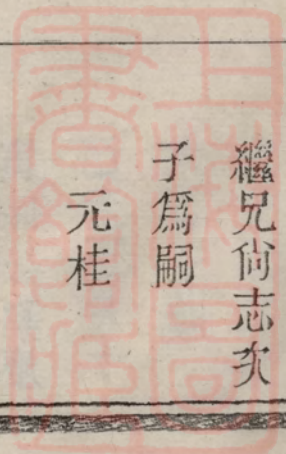 繼兄尙志次
子爲嗣
元桂